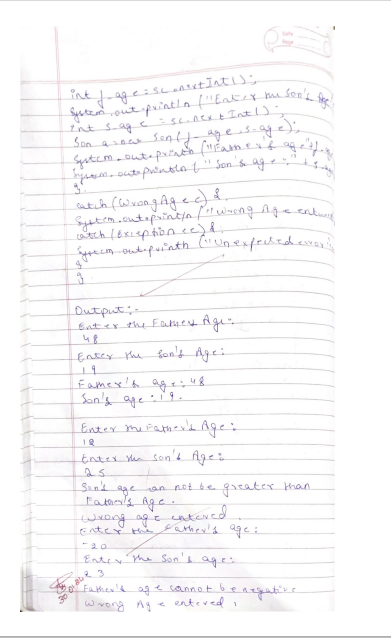 Date
Page
int f-age = sc.nextInt();
System.out.println("Enter the Son's Age
int s-age = sc.nextInt();
Son a=new Son(f-age,s-age);
System.out.println("Father's age"+f-ag
System.out.println("Son's age:"+s-ag
}
catch(WrongAge c){
System.out.println("Wrong Age entered
catch(Exception ec){
System.out.println("Unexpected error
}
}
Output:-
Enter the Father Age:
48
Enter the Son's Age:
19
Father's age:48
Son's age:19.
Enter the Father's Age:
18
Enter the son's Age:
25
Son's age can not be greater than
Father's Age.
Wrong age entered.
Enter the Father's age:
-20
Enter the Son's age:
23
Father's age cannot be negative
Wrong Age entered